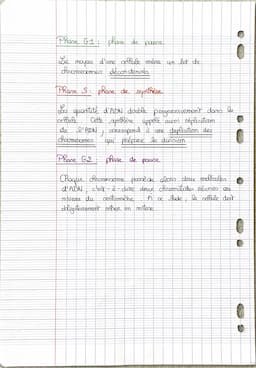 Phase G1 : phase de pause
Le noyau d'une cellule mère un lot de
chromosomes décondensés
Phase S : phase de synthèse
La quantité d'ADN double progressivement dans la
cellule. Cette synthèse appelé aussi réplication
de l'ADN, correspond à une duplication des
chromosomes qui prépare la division
Phase G2 : phase de pause
Chaque chromosome possède alors deux molécules
d'ADN, c'est-à-dire deux chromatides réunies au
niveau du centromère. A ce stade, la cellule doit
obligatoirement entrer en mitose